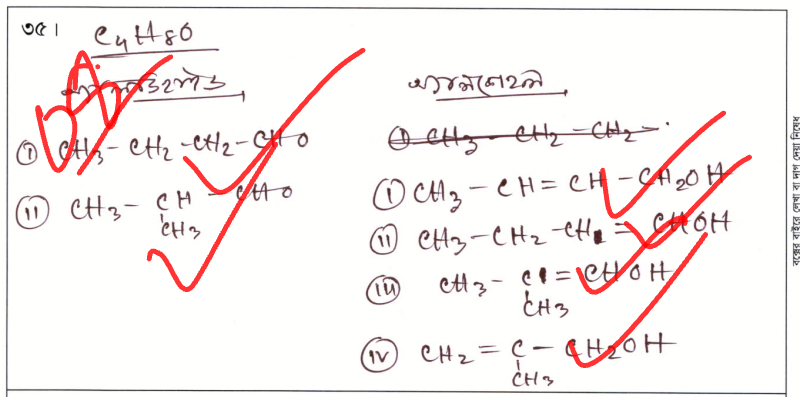 ৩৫।
C4H8O
অ্যালডিহাইড
(i) CH3 - CH2 - CH2 - CHO
(ii) CH3 - CH - CHO
CH3
অ্যালকোহল
(i) CH3 - CH2 - CH2 -
(i) CH3 - CH = CH - CH2OH
(ii) CH3 - CH2 - CH = CHOH
(iii) CH3 - C = CHOH
CH3
(iv) CH2 = C - CH2OH
CH3
বক্সের বাইরে লেখা বা দাগ দেয়া নিষেধ